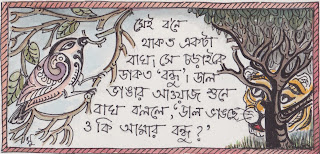 সেই বনে
থাকত একটা
বাঘ। সে চড়াইকে
ডাকত 'বন্ধু'। ডাল
ভাঙার আওয়াজ শুনে
বাঘ বললে, 'ডাল ভাঙছে
ও কি আমার বন্ধু?'